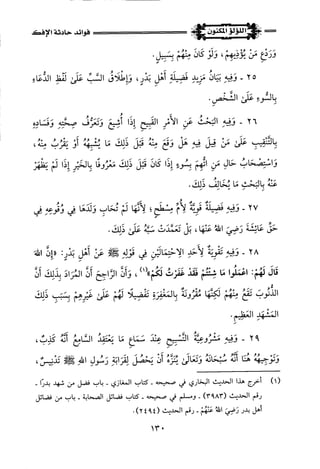 اللؤلؤ المكنون
فوائد حادثة الإفك
وَرَدْعِ مَنْ يُؤْذِيهِمْ، وَلَوْ كَانَ مِنْهُمْ بِسَبِيلٍ.
٢٥ - وَفِيهِ بَيَانُ مَزِيدِ فَضِيلَةِ أَهْلِ بَدْرٍ، وَإِطْلَاقُ السَّبِّ عَلَىٰ لَفْظِ الدُّعَاءِ
بِالسُّوءِ عَلَىٰ الشَّخْصِ.
٢٦ - وَفِيهِ الْبَحْثُ عَنِ الْأَمْرِ الْقَبِيحِ إِذَا أُشِيعَ وَتَعَرُّفُ صِحَّتِهِ وَفَسَادِهِ
بِالتَّنْقِيبِ عَلَىٰ مَنْ قِيلَ فِيهِ هَلْ وَقَعَ مِنْهُ قَبْلَ ذَلِكَ مَا يُشْبِهُهُ أَوْ يَقْرُبُ مِنْهُ،
وَاسْتِصْحَابُ حَالِ مَنِ اتُّهِمَ بِسُوءٍ إِذَا كَانَ قَبْلَ ذَلِكَ مَعْرُوفًا بِالْخَيْرِ إِذَا لَمْ يَظْهَرْ
عَنْهُ بِالْبَحْثِ مَا يُخَالِفُ ذَلِكَ.
٢٧ - وَفِيهِ فَضِيلَةٌ قَوِيَّةٌ لِأُمِّ مِسْطَحٍ؛ لِأَنَّهَا لَمْ تُحَابِ وَلَدَهَا فِي وُقُوعِهِ فِي
حَقِّ عَائِشَةَ رَضِيَ اللهُ عَنْهَا، بَلْ تَعَمَّدَتْ سَبَّهُ عَلَىٰ ذَلِكَ.
٢٨ - وَفِيهِ تَقْوِيَةٌ لِأَحَدِ الِاحْتِمَالَيْنِ فِي قَوْلِهِ ﷺ عَنْ أَهْلِ بَدْرٍ: «إِنَّ اللهَ
قَالَ لَهُمُ: اعْمَلُوا مَا شِئْتُمْ فَقَدْ غَفَرْتُ لَكُمْ»(١)، وَأَنَّ الرَّاجِحَ أَنَّ الْمُرَادَ بِذَلِكَ أَنَّ
الذُّنُوبَ تَقَعُ مِنْهُمْ لَكِنَّهَا مَقْرُونَةٌ بِالْمَغْفِرَةِ تَفْضِيلًا لَهُمْ عَلَىٰ غَيْرِهِمْ بِسَبَبِ ذَلِكَ
الْمَشْهَدِ الْعَظِيمِ.
٢٩ - وَفِيهِ مَشْرُوعِيَّةُ التَّسْبِيحِ عِنْدَ سَمَاعِ مَا يَعْتَقِدُ السَّامِعُ أَنَّهُ كَذِبٌ،
وَتَوْجِيهُهُ هُنَا أَنَّهُ سُبْحَانَهُ وَتَعَالَىٰ يُنَزَّهُ أَنْ يَحْصُلَ لِقَرَابَةِ رَسُولِ اللهِ ﷺ تَدْنِيسٌ،
(١) أخرج هذا الحديث البخاري في صحيحه - كتاب المغازي - باب فضل من شهد بدرًا -
رقم الحديث (٣٩٨٣) - ومسلم في صحيحه - كتاب فضائل الصحابة - باب من فضائل
أهل بدر رَضِيَ اللهُ عَنْهُمْ - رقم الحديث (٢٤٩٤).
١٣٠